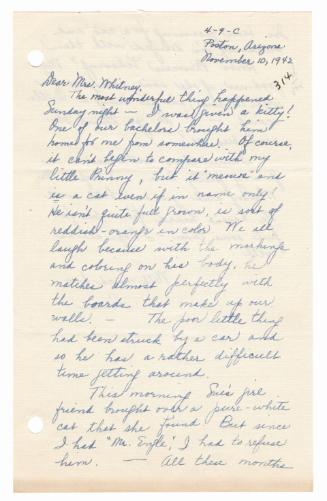 4-9-C
Poston, Arizona
November 10, 1942
314
Dear Mrs. Whitney:
The most wonderful thing happened
Sunday night — I was given a kitty!
One of our bachelors brought him
home for me from somewhere. Of course,
it can't begin to compare with my
little Binny, but it "meows" and
is a cat even if in name only!
He isn't quite full grown, is sort of
reddish-orange in color. We all
laugh because with the markings
and coloring on his body, he
matches almost perfectly with
the boards that make up our
walls. — The poor little thing
had been struck by a car and
so he has a rather difficult
time getting around.
This morning Sue's girl
friend brought over a pure-white
cat that she found. But since
I had "Mr. Engle", I had to refuse
him. — All these months